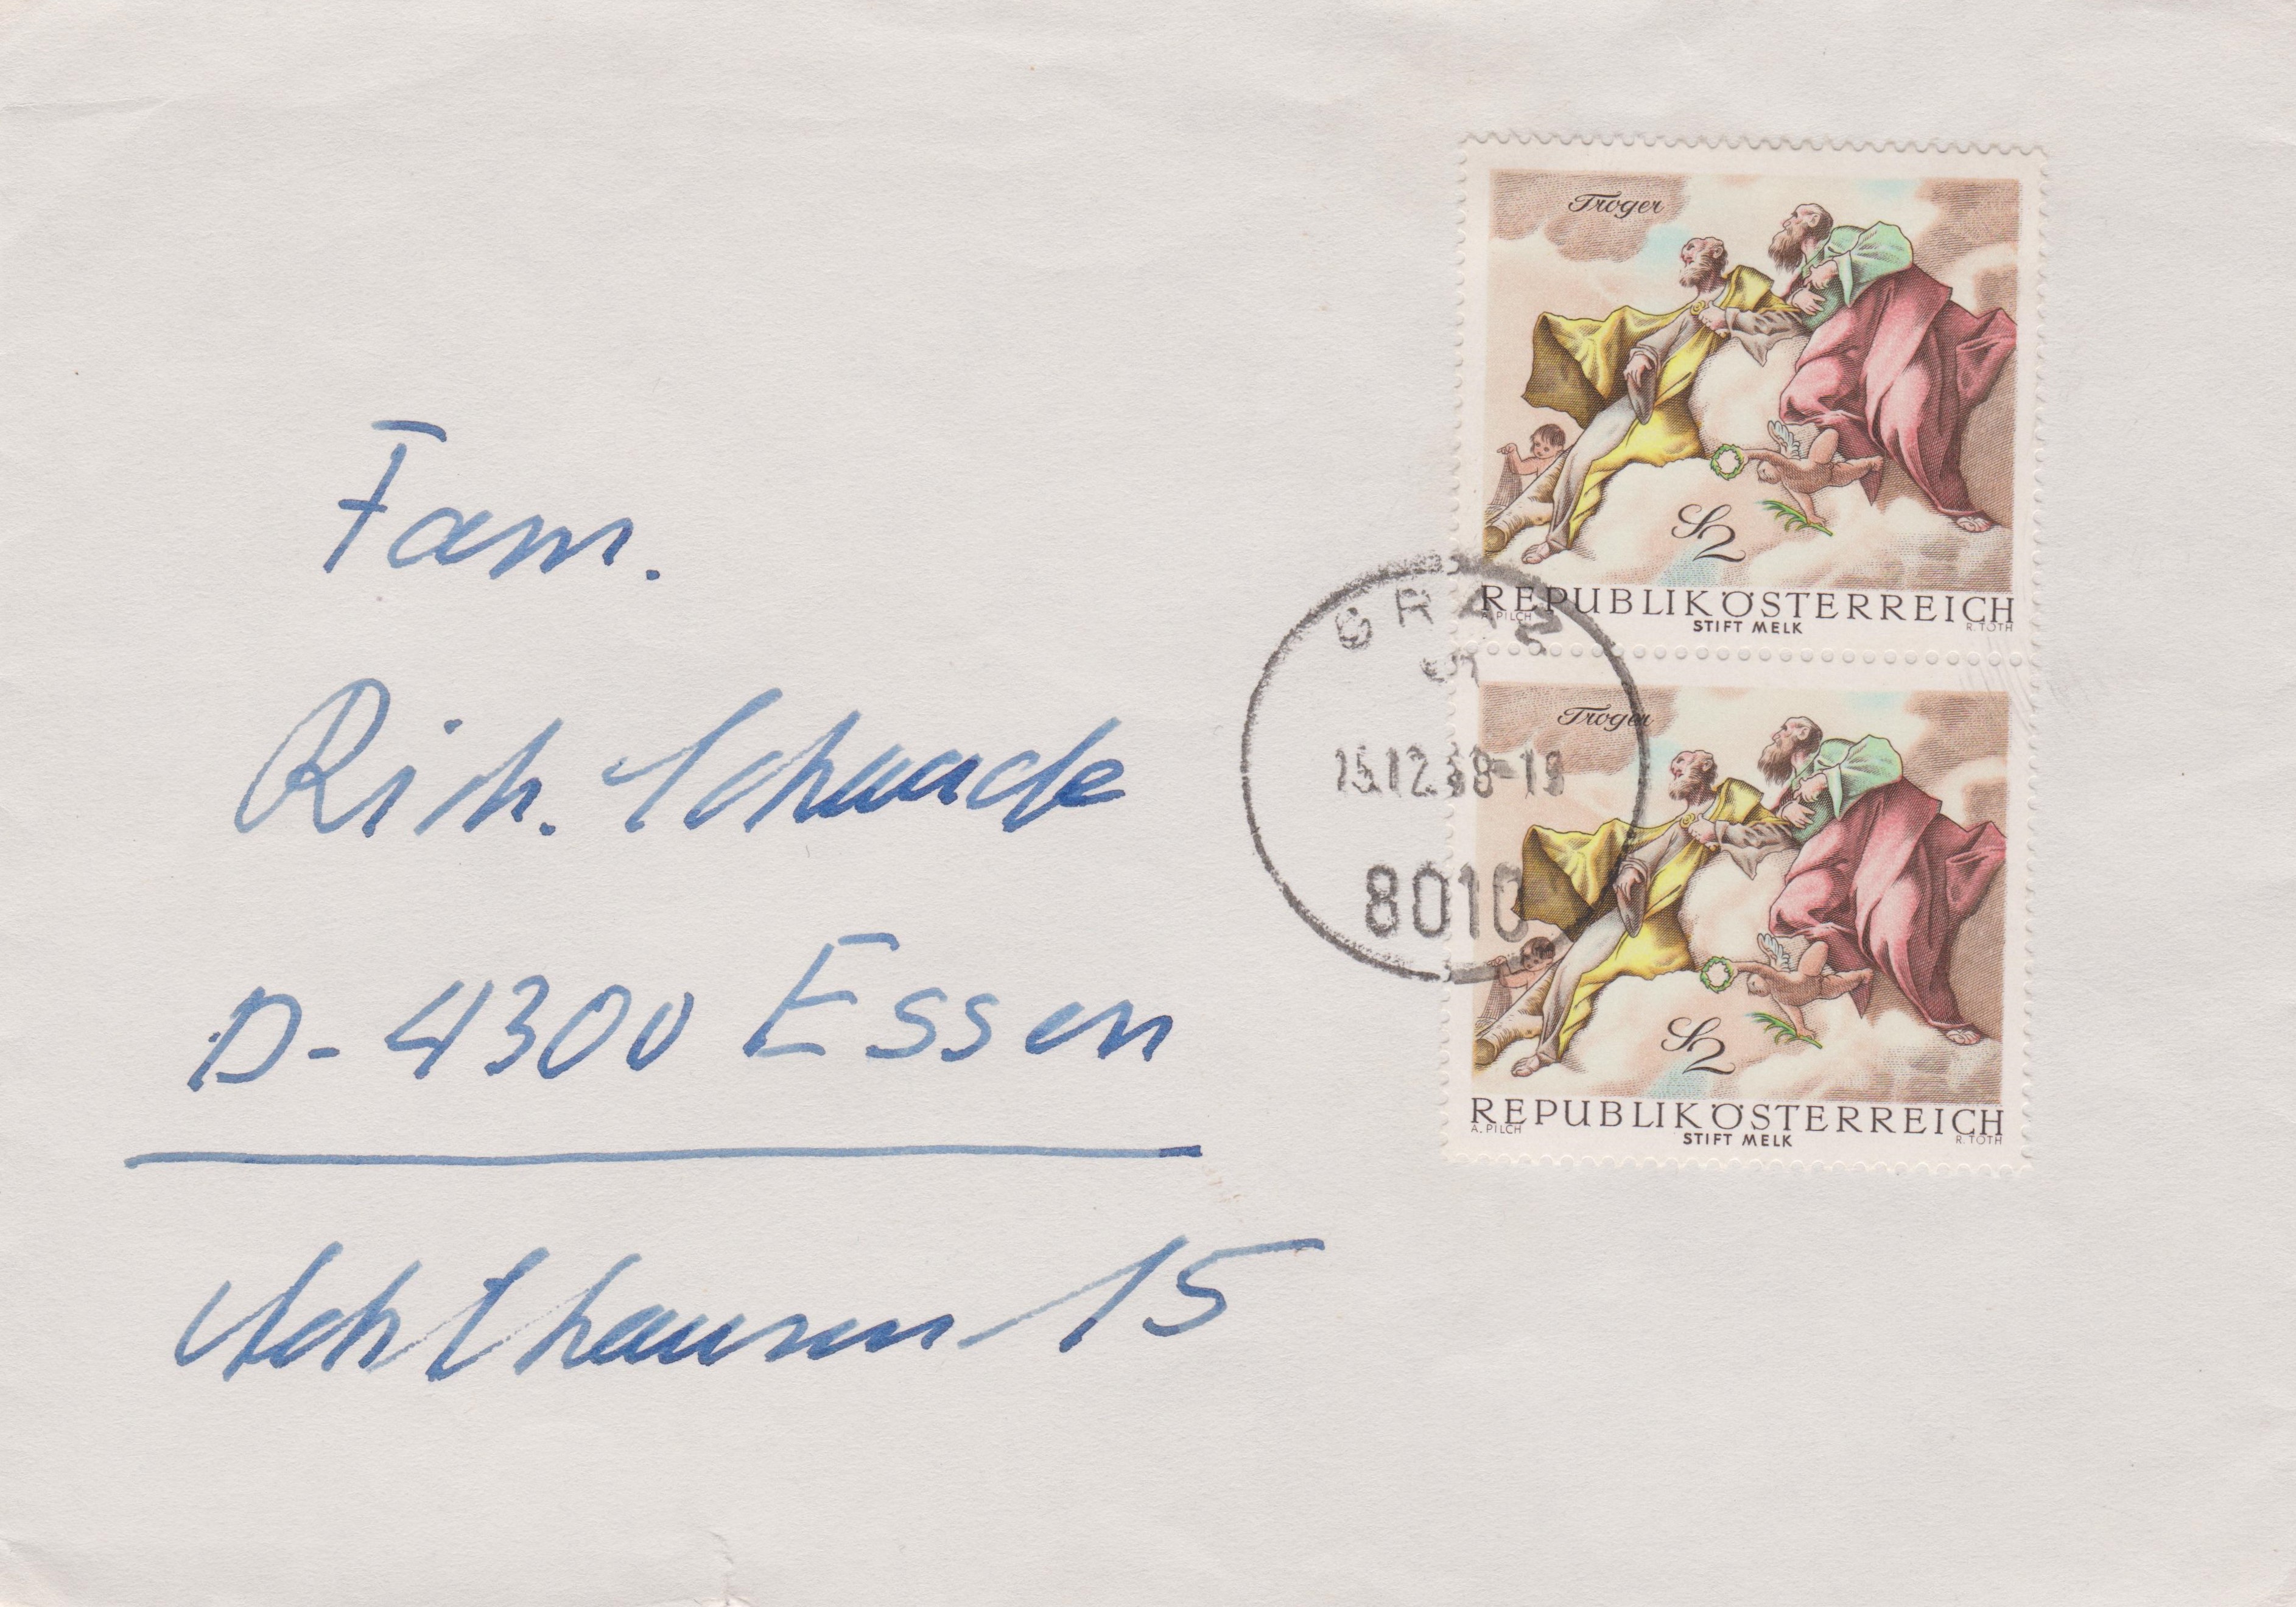 Fam.
Rich. Schwade
D-4300 Essen
Achthausen 15
Troger
S2
REPUBLIK ÖSTERREICH
A. PILCH STIFT MELK R. TOTH
GRAZ
15.12.68-19
8010
Troger
S2
REPUBLIK ÖSTERREICH
A. PILCH STIFT MELK R. TOTH